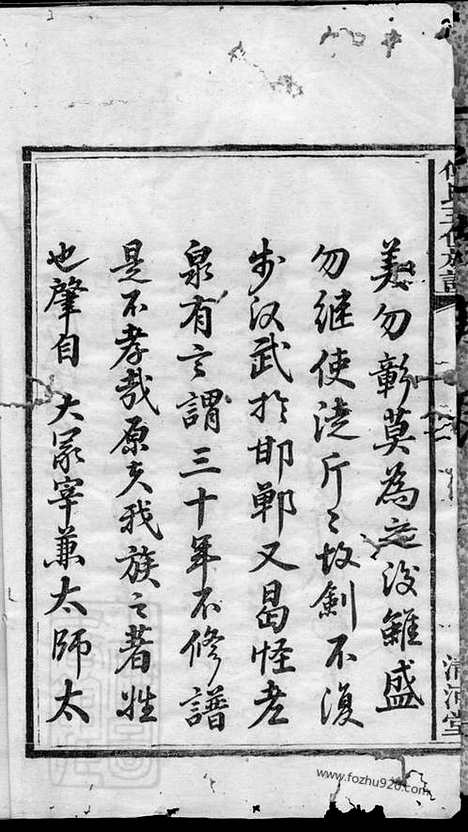 清河堂
美勿彰莫為之後雖盛
勿继使澆斤〻故劍不復
步汉武於邯鄲又曷怪老
泉有言謂三十年不修譜
是不孝哉原夫我族之著姓
也肇自 大冢宰兼太師太
www.fozhu920.com